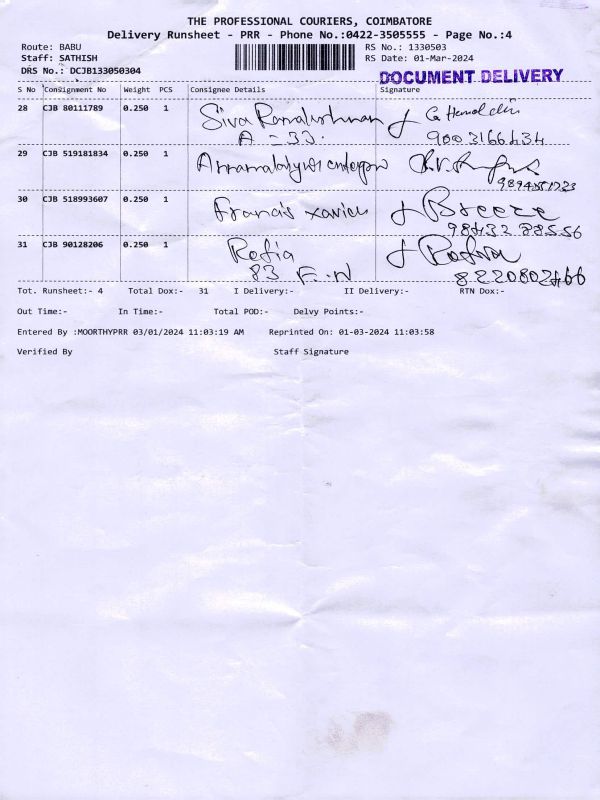 THE PROFESSIONAL COURIERS, COIMBATORE
Delivery Runsheet - PRR - Phone No.:0422-3505555 - Page No.:4
Route: BABU RS No.: 1330503
Staff: SATHISH RS Date: 01-Mar-2024
DRS No.: DCJB133050304 DOCUMENT DELIVERY
S No Consignment No Weight PCS Consignee Details Signature
28 CJB 80111789 0.250 1 Siva Ramakrishnan
A - 33. 9003166434
29 CJB 519181834 0.250 1
30 CJB 518993607 0.250 1 Francis xavier Breeze
98432 88556
31 CJB 90128206 0.250 1 Rafia Rafiya
83 F.N 8220802466
Tot. Runsheet:- 4 Total Dox:- 31 I Delivery:- II Delivery:- RTN Dox:-
Out Time:- In Time:- Total POD:- Delvy Points:-
Entered By :MOORTHYPRR 03/01/2024 11:03:19 AM Reprinted On: 01-03-2024 11:03:58
Verified By Staff Signature